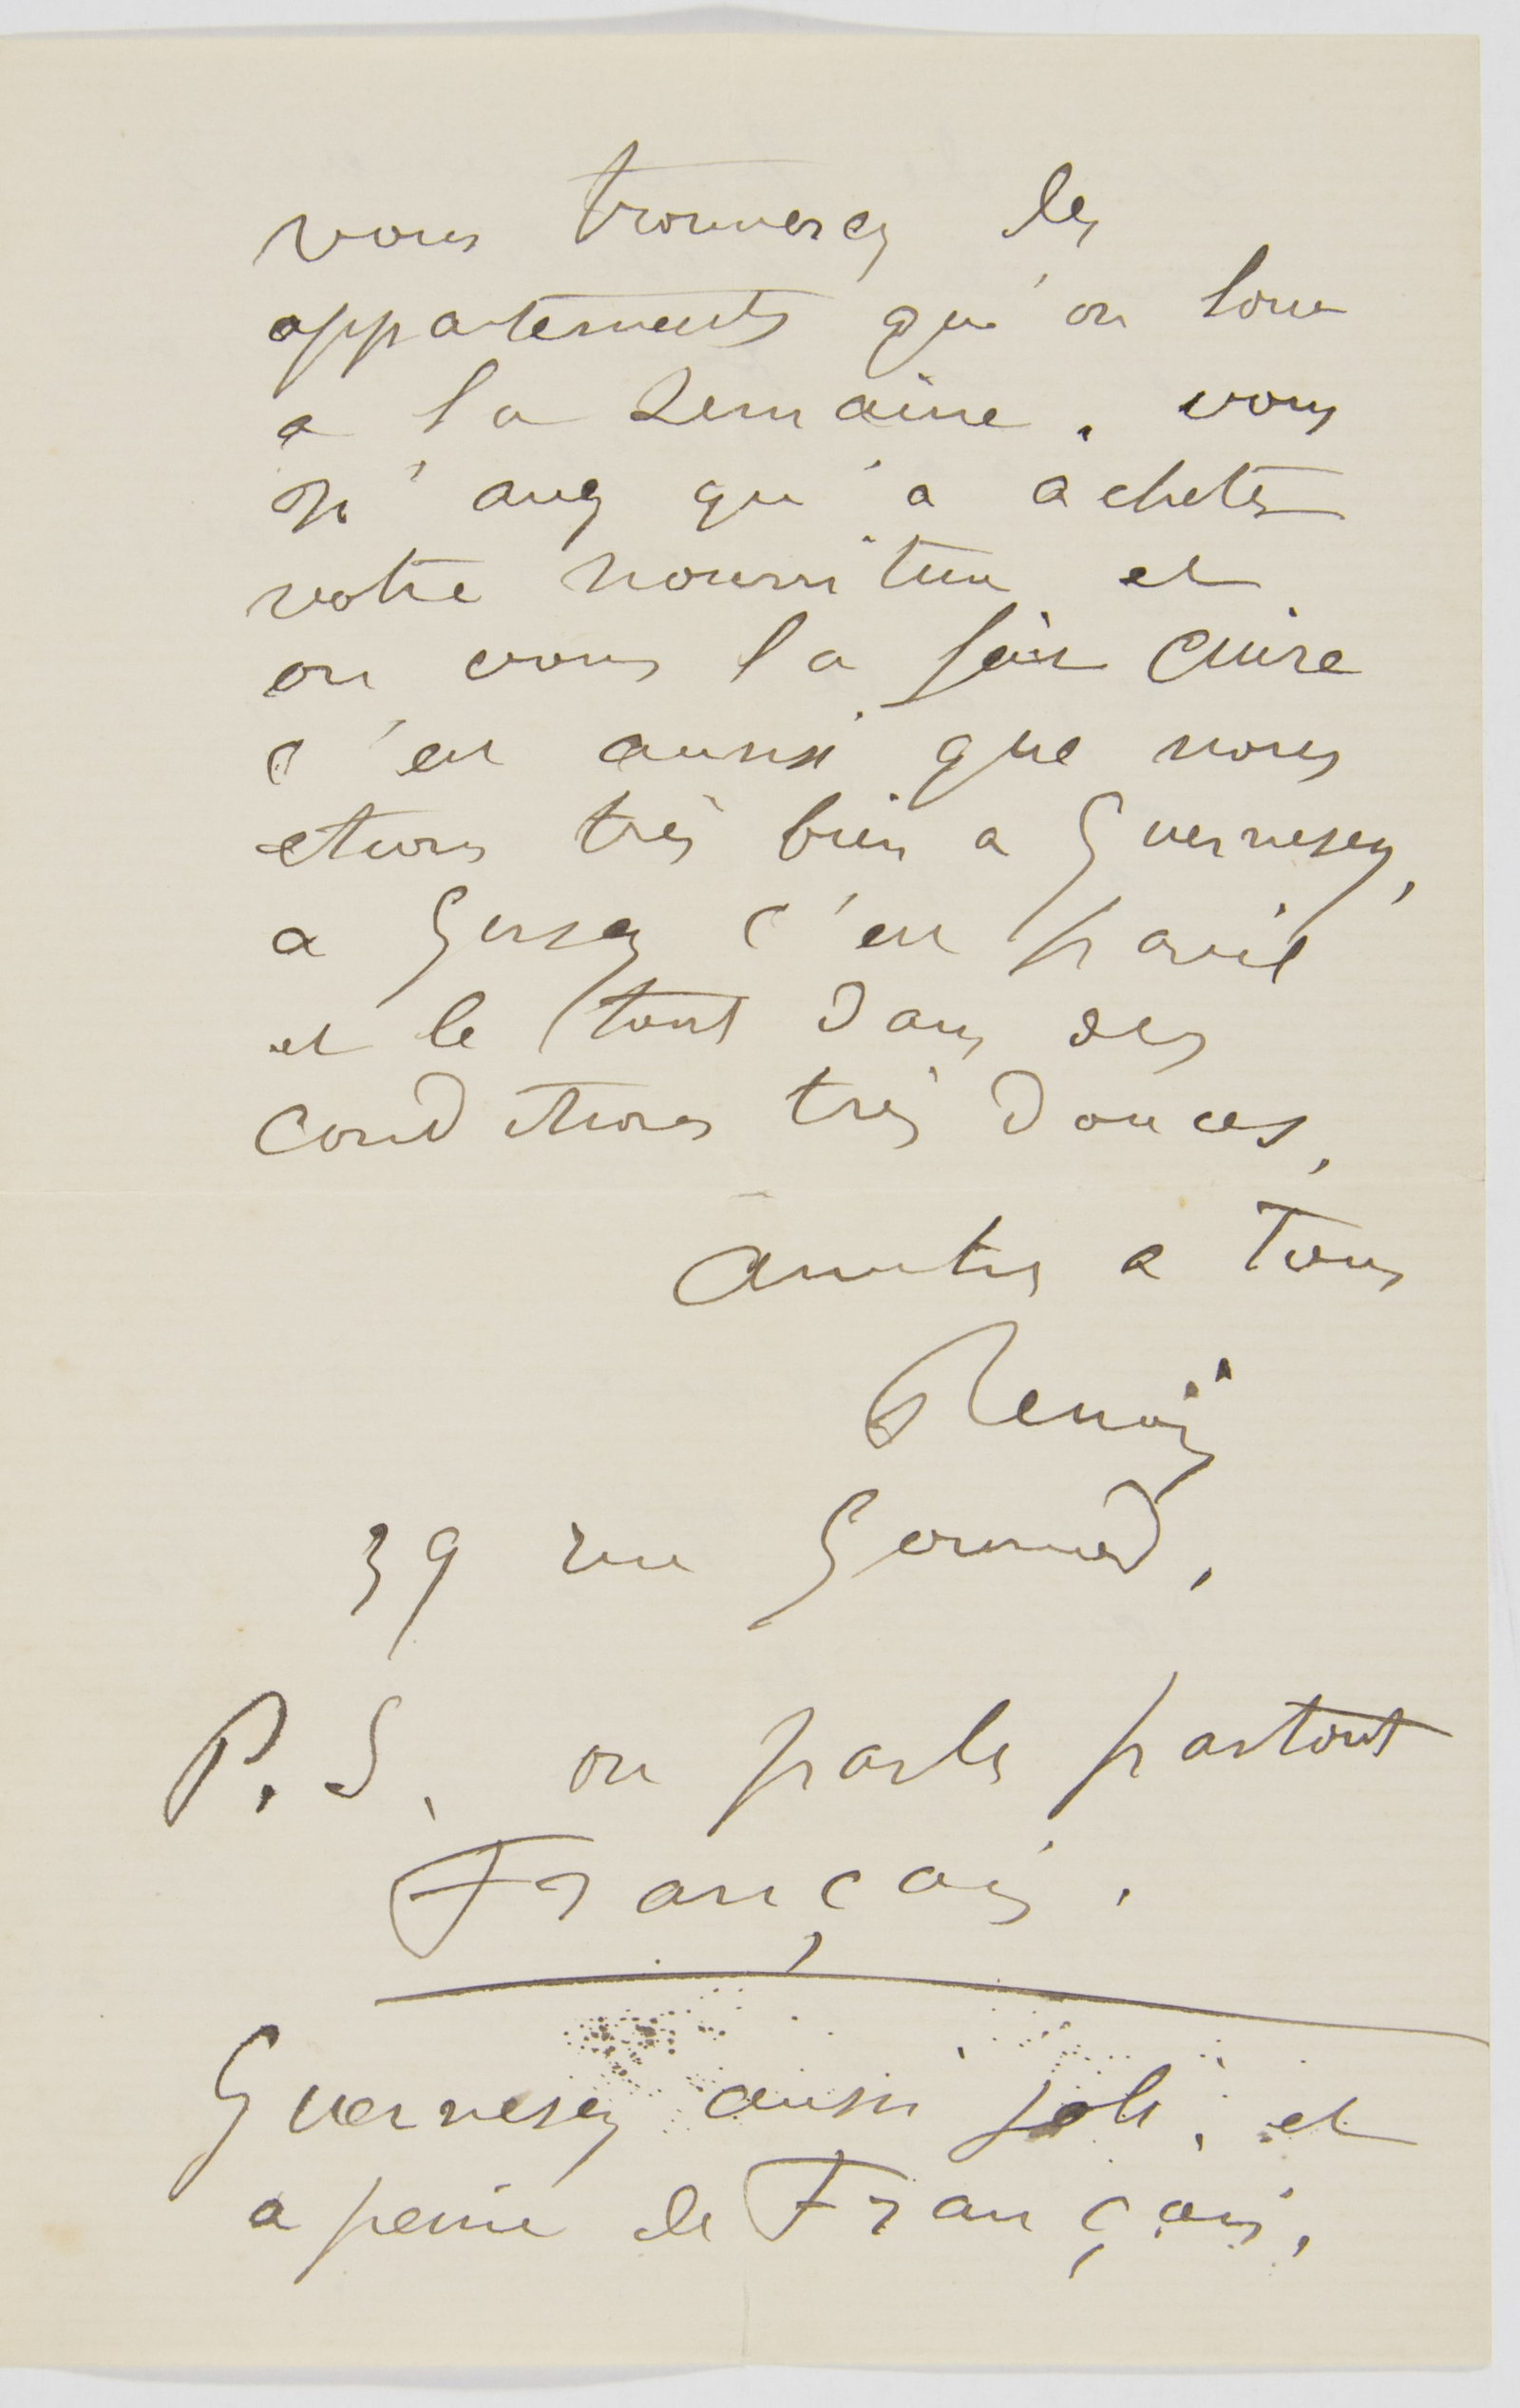 vous trouverez des
appartements qu'on loue
a la semaine. vous
n'avez qu'a acheter
votre nourriture et
on vous la fait cuire
c'est aussi que nous
etions très bien a Guernesey,
a Gersey c'est pareil
et le tout dans des
conditions très douces,
amities a tous
Renoir
39 rue
P.S. on parle partout
Français.
Guernesey aussi joli, et
a peine de Français.